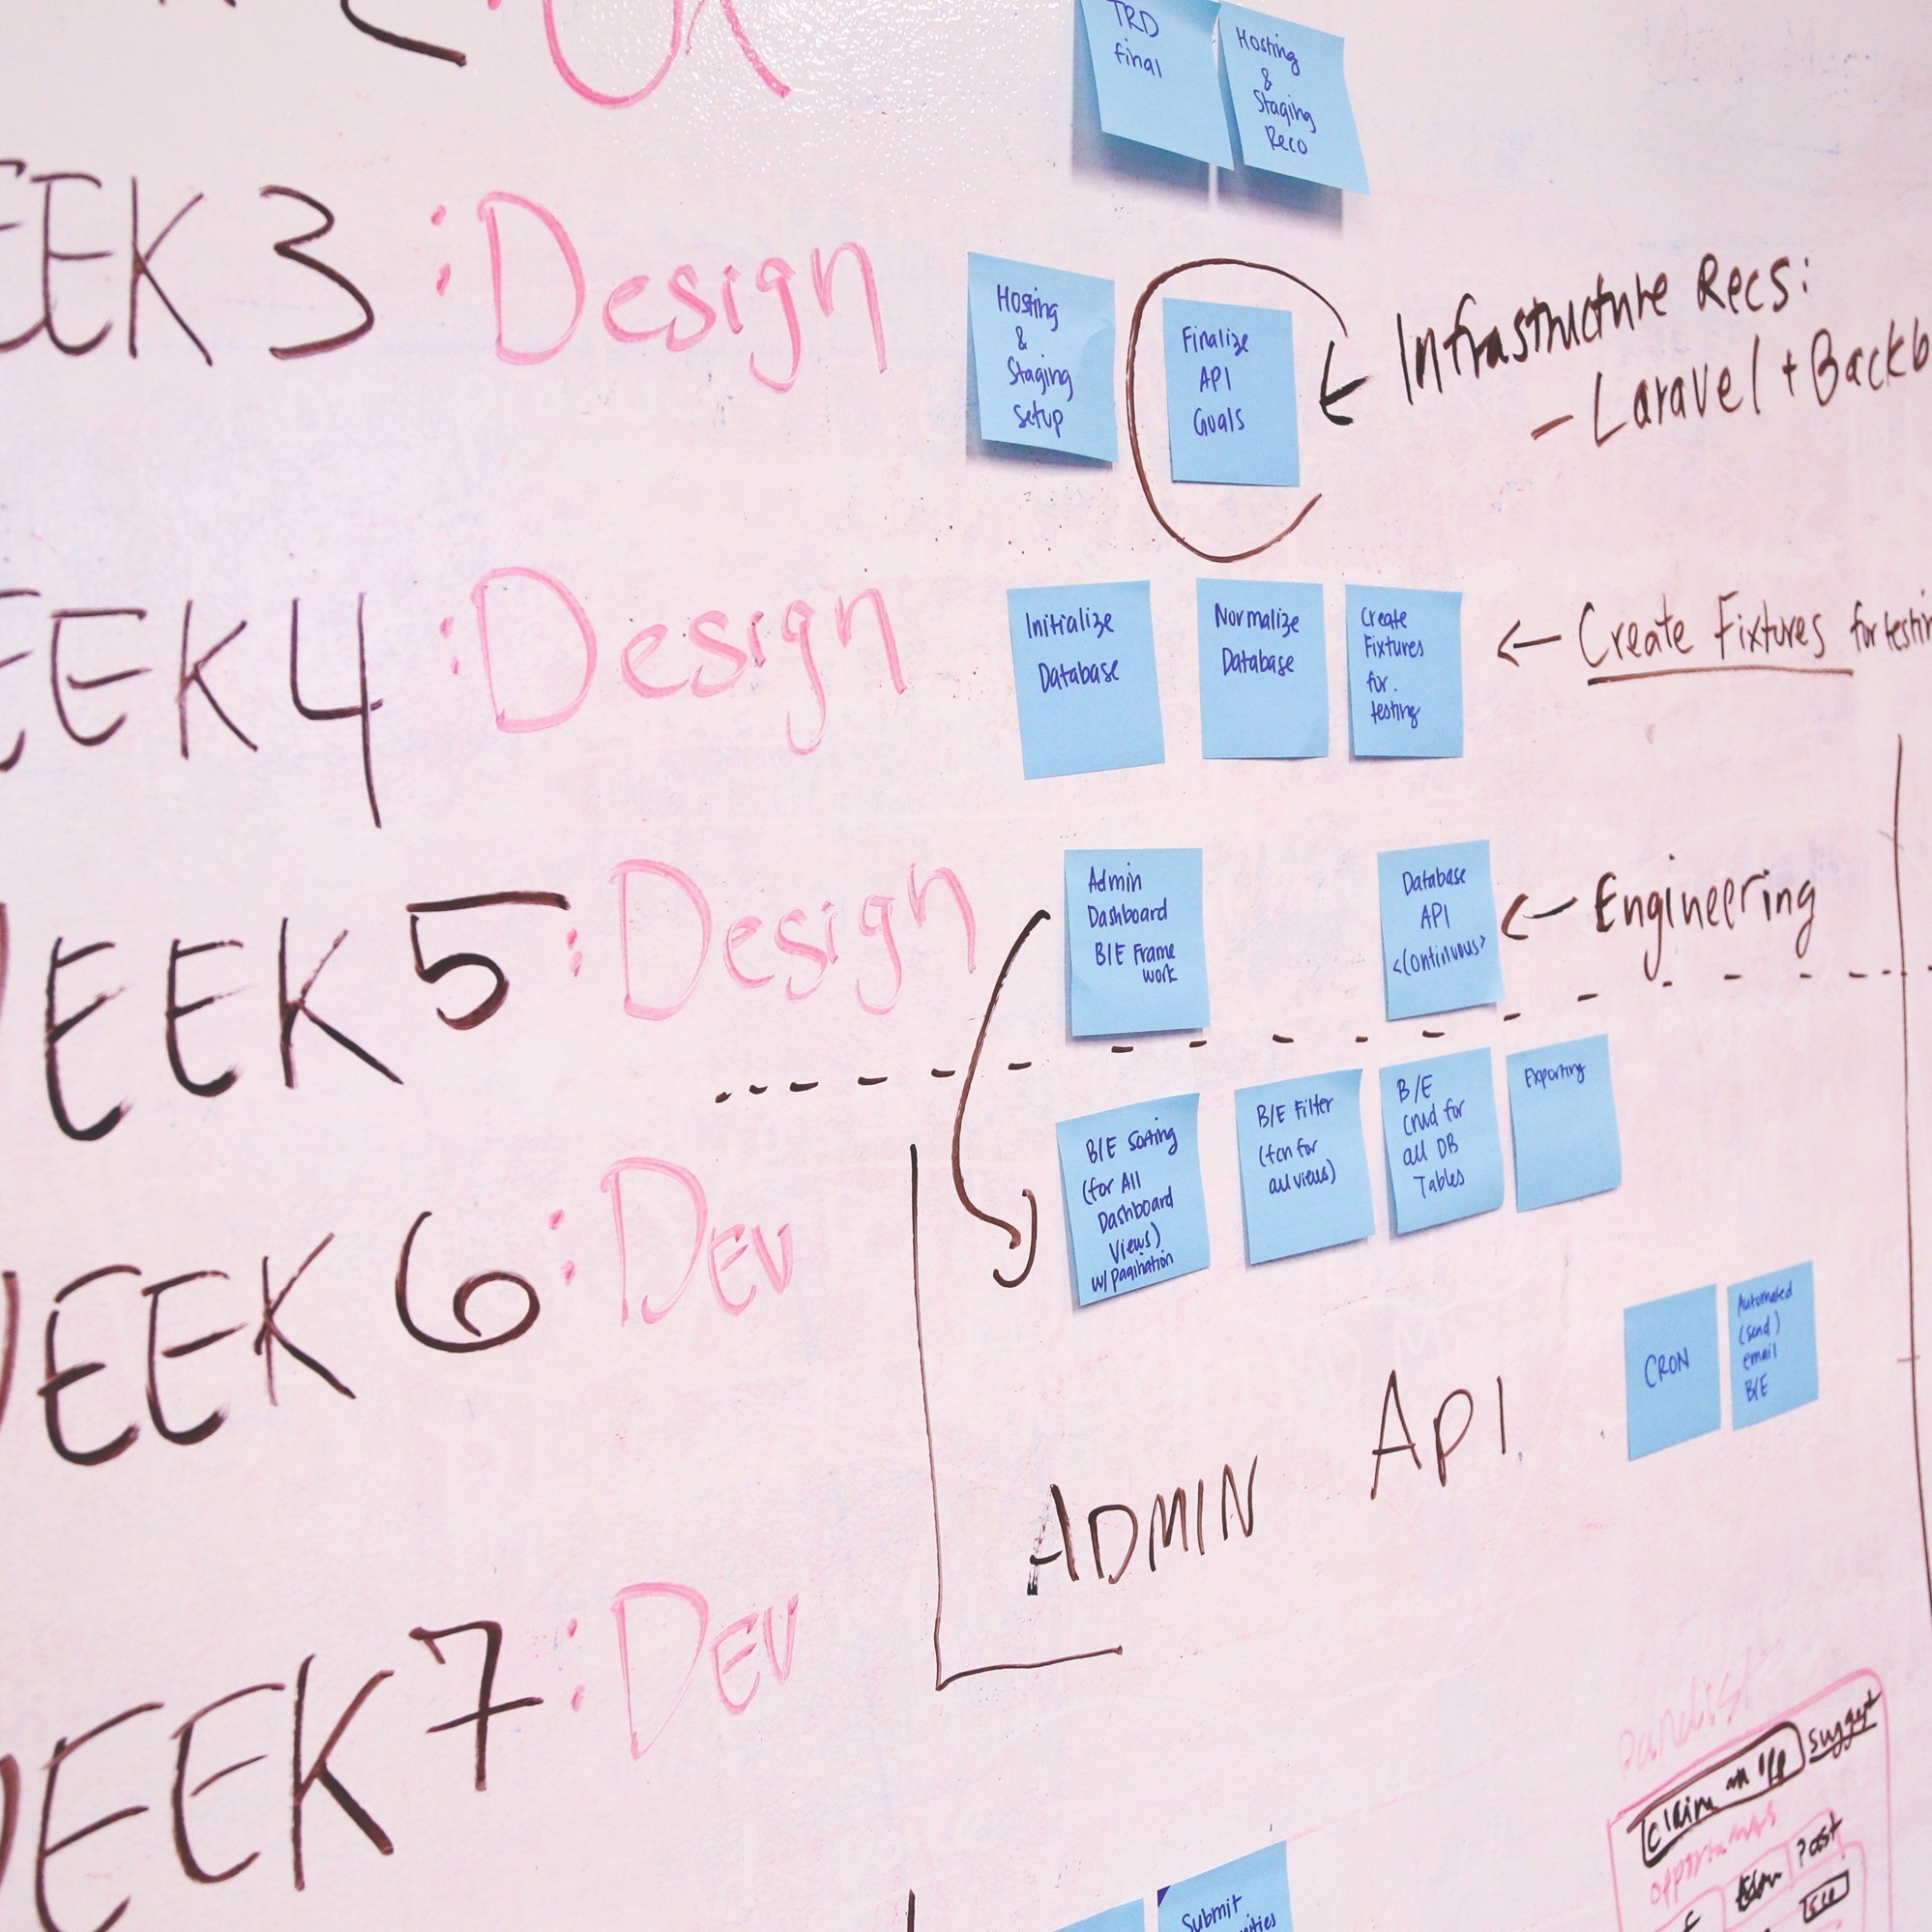 TRD
final
Hosting
&
Staging
Reco
EEK 3 : Design
Hosting
&
Staging
Setup
Finalize
API
Goals
Infrastructure Recs:
- Laravel + Backb
EEK 4 : Design
Initialize
Database
Normalize
Database
Create
Fixtures
for.
testing
← Create Fixtures for testin
WEEK 5 : Design
Admin
Dashboard
B/E Frame
work
Database
API
<Continuous>
← Engineering
WEEK 6 : DEV
B/E Sorting
(for All
Dashboard
Views)
w/ pagination
B/E Filter
(fcn for
all views)
B/E
Crud for
all DB
Tables
Exporting
CRON
Automated
(send)
email
B/E
ADMIN API
WEEK 7 : DEV
Panelist
Claim an opp
suggest
Past
Submit